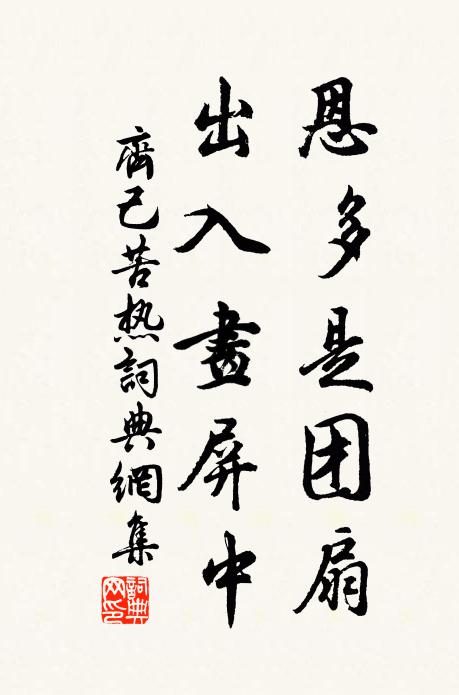 恩多是团扇
出入畫屏中
齊己苦热詞典網集
詞典网印